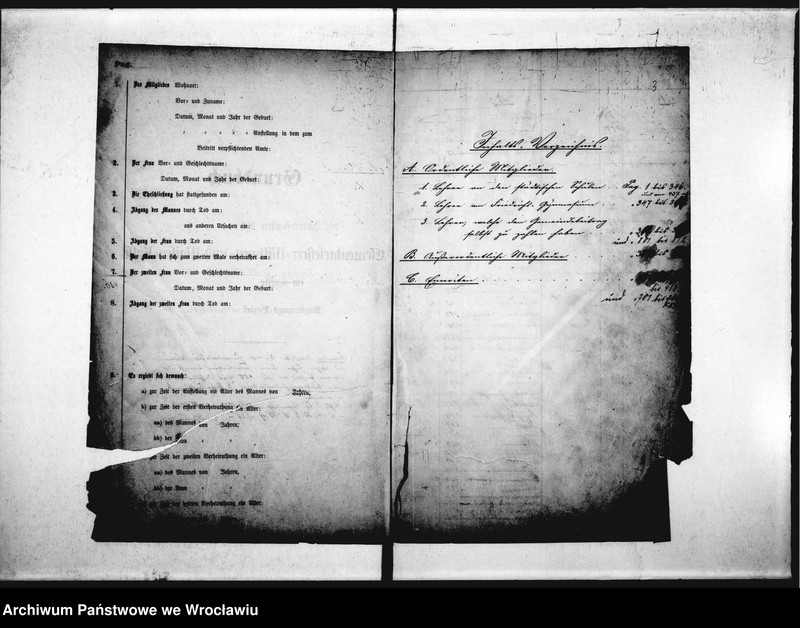 1. Des Mitgliedes Wohnort:
Vor- und Zuname:
Datum, Monat und Jahr der Geburt:
" " " " Anstellung in dem zum
Beitritt verpflichtenden Amte:
2. Der Frau Vor- und Geschlechtsname:
Datum, Monat und Jahr der Geburt:
3. Die Eheschließung hat stattgefunden am:
4. Abgang des Mannes durch Tod am:
aus anderen Ursachen am:
5. Abgang der Frau durch Tod am:
6. Der Mann hat sich zum zweiten Male verheirathet am:
7. Der zweiten Frau Vor- und Geschlechtsname:
Datum, Monat und Jahr der Geburt:
8. Abgang der zweiten Frau durch Tod am:
9. Es ergiebt sich demnach:
a) zur Zeit der Anstellung ein Alter des Mannes von Jahren,
b) zur Zeit der ersten Verheirathung ein Alter:
aa) des Mannes von Jahren,
bb) der Frau " "
zur Zeit der zweiten Verheirathung ein Alter:
aa) des Mannes von Jahren,
bb) der Frau " "
zur Zeit der dritten Verheirathung ein Alter:
3
Inhalts-Verzeichnis.
A. Ordentliche Mitglieder.
1. Lehrer an den städtischen Schulen . Pag. 1 bis 346
2. Lehrer am Friedrichs-Gymnasium . . " 347 bis
3. Lehrer, welche den Gemeindebeitrag
selbst zu zahlen haben
und
B. Außerordentliche Mitglieder
C. Emeriten
bis
und " 701 bis
Archiwum Państwowe we Wrocławiu